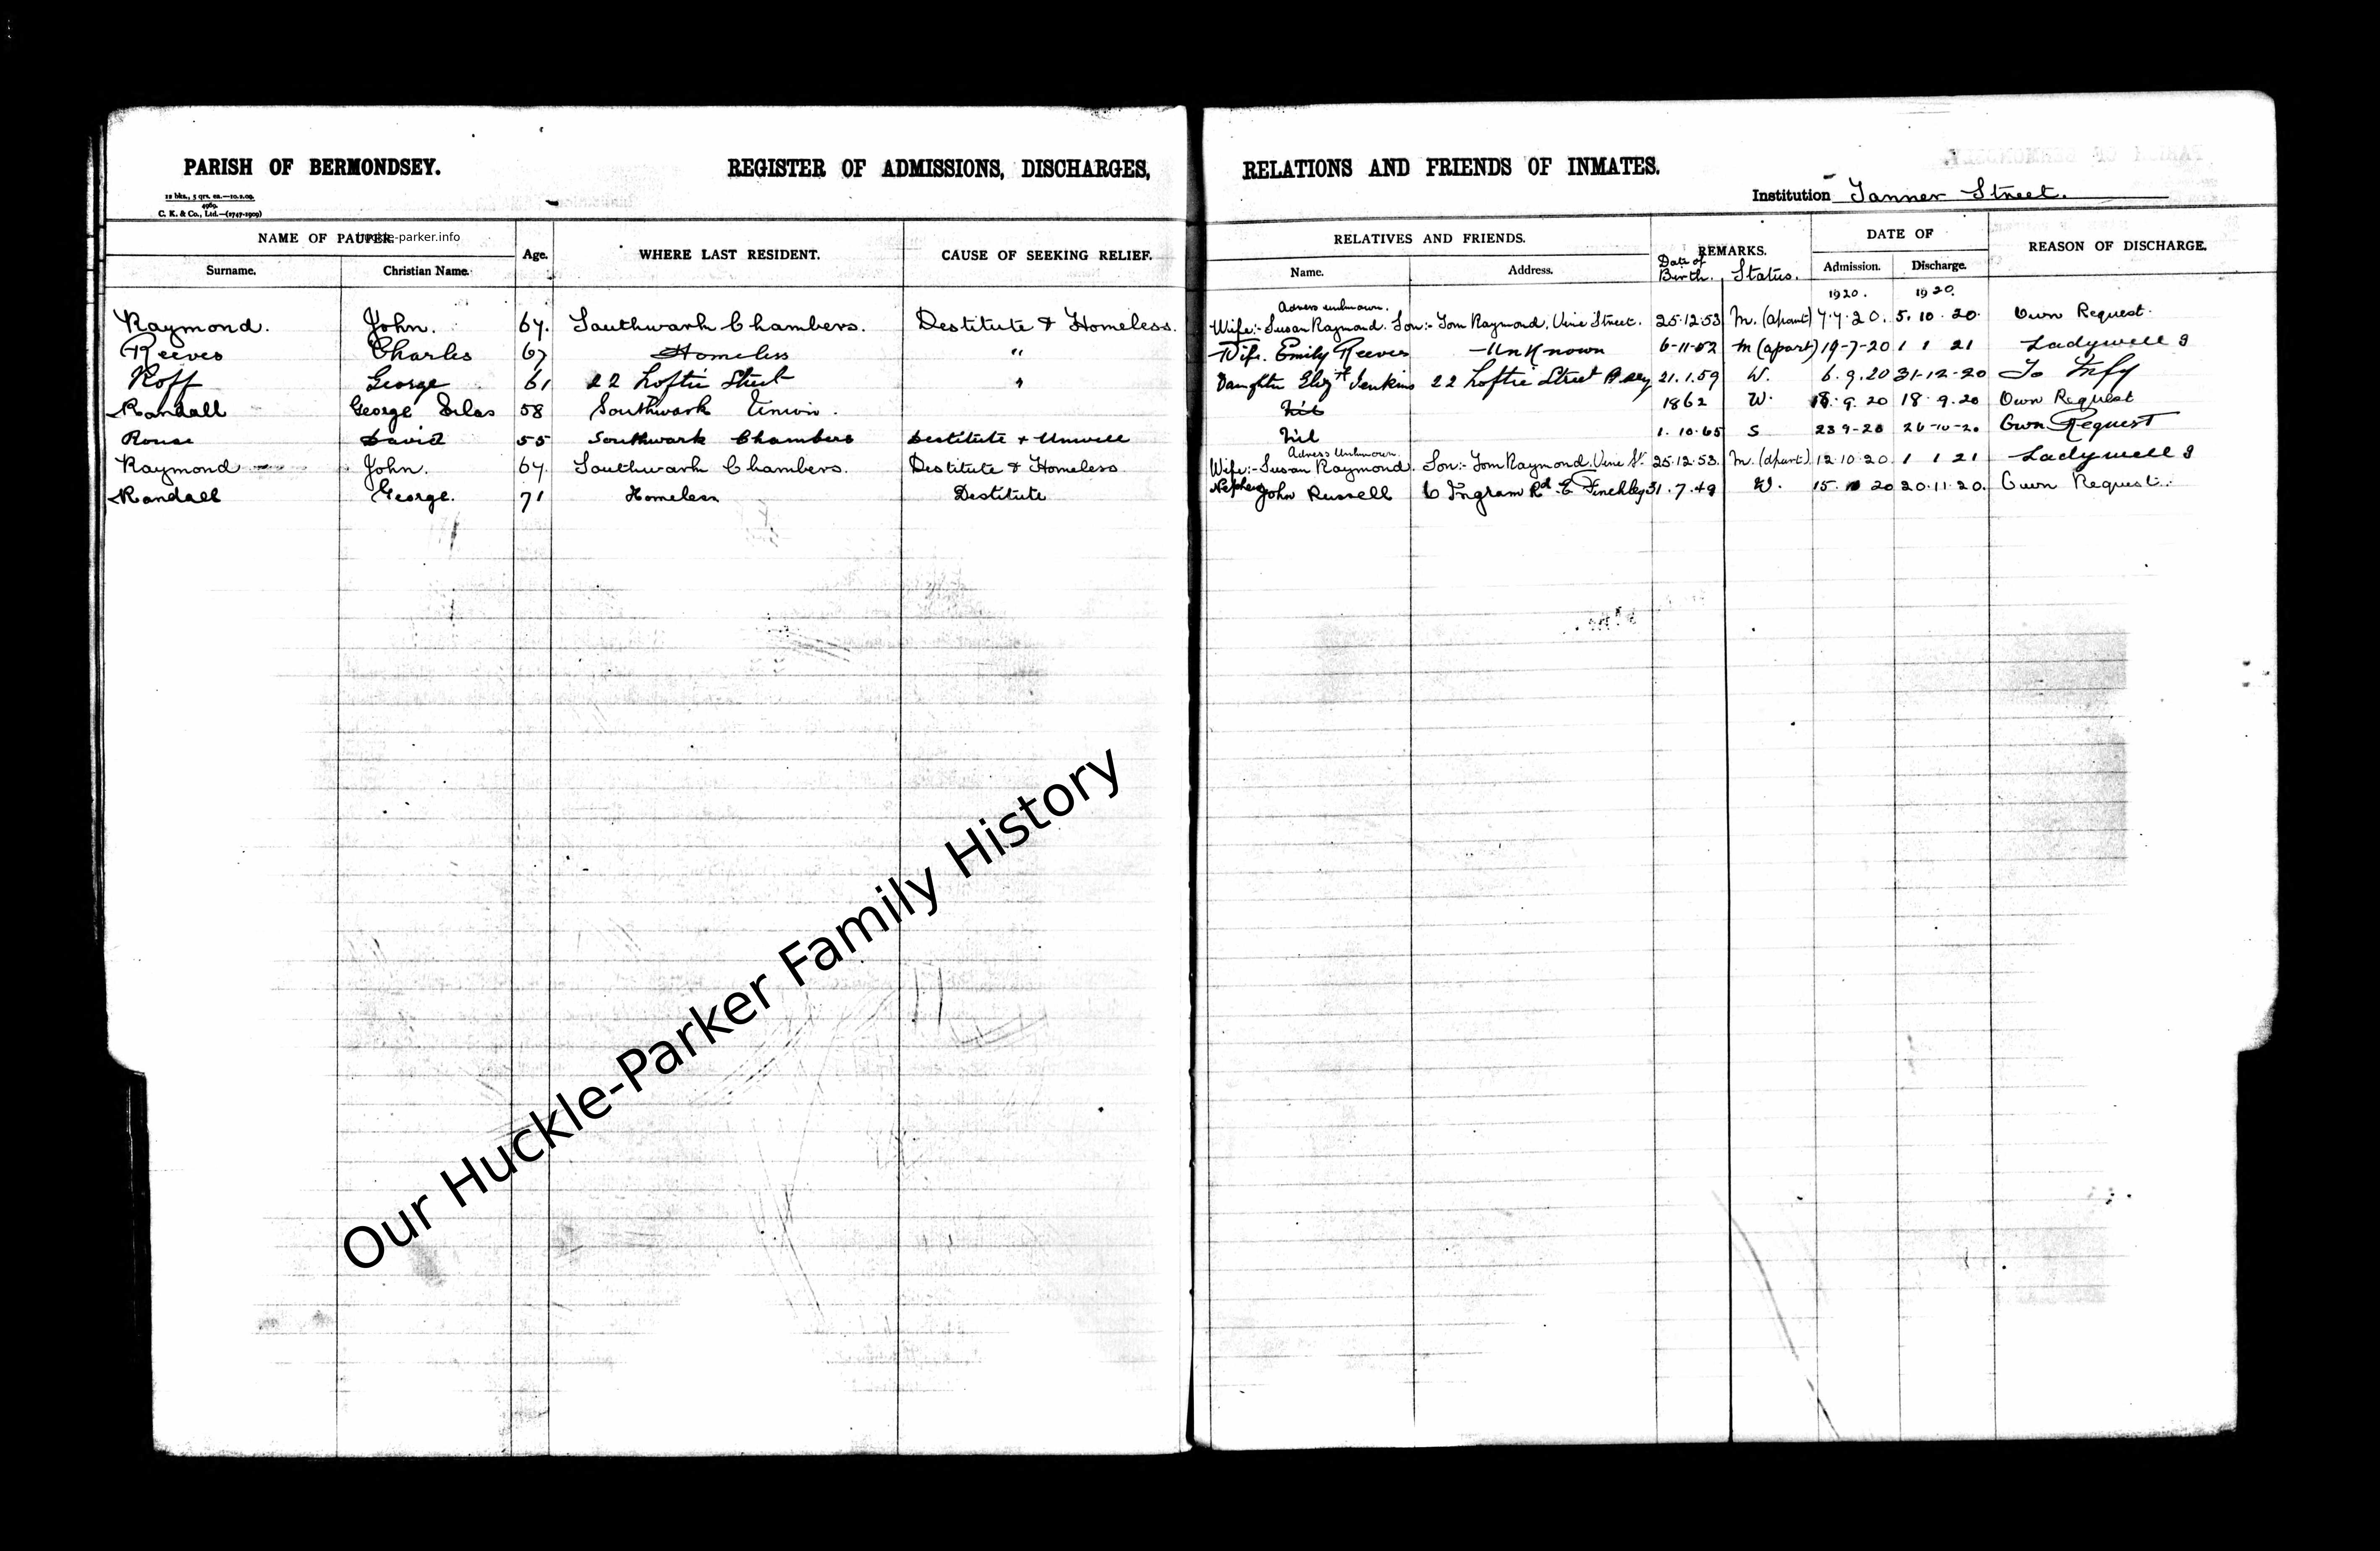 PARISH OF BERMONDSEY. REGISTER OF ADMISSIONS, DISCHARGES, RELATIONS AND FRIENDS OF INMATES.
12 bks., 5 qrs. ea.—10.2.09.
4969.
C. K. & Co., Ltd.—(2747-1909)
Institution Tanner Street.
NAME OF PAUPER. huckle-parker.info Age. WHERE LAST RESIDENT. CAUSE OF SEEKING RELIEF. RELATIVES AND FRIENDS. REMARKS. DATE OF REASON OF DISCHARGE.
Surname. Christian Name. Name. Address. Date of Birth. Status. Admission. Discharge.
1920. 1920.
Adress unknown.
Raymond. John. 67. Southwark Chambers. Destitute & Homeless. Wife:- Susan Raymond. Son:- Tom Raymond. Vine Street. 25.12.53 M. (apart) 7.7.20. 5.10.20. Own Request.
Reeves Charles 67 Homeless " Wife. Emily Reeves - Unknown 6-11-52 M (apart) 19-7-20 1 1 21 Ladywell I
Roff George 61 22 Loftie Street " Daughter Elizth Jenkins 22 Loftie Street B'sey 21.1.59 W. 6.9.20 31-12-20 To Infy
Randall George Silas 58 Southwark Union. Nil 1862 W. 18.9.20 18.9.20 Own Request
Rouse David 55 Southwark Chambers Destitute + Unwell Nil 1.10.65 S 23 9-20 26-10-20 Own Request
Adress Unknown.
Raymond John. 67. Southwark Chambers. Destitute & Homeless Wife:- Susan Raymond. Son:- Tom Raymond. Vine St. 25.12.53. M. (apart). 12.10.20. 1 1 21 Ladywell I
Randall George. 71 Homeless Destitute Nephew John Russell 6 Ingram Rd. E Finchley 31.7.49 W. 15.10 20 20.11.20. Own Request.
Our Huckle-Parker Family History